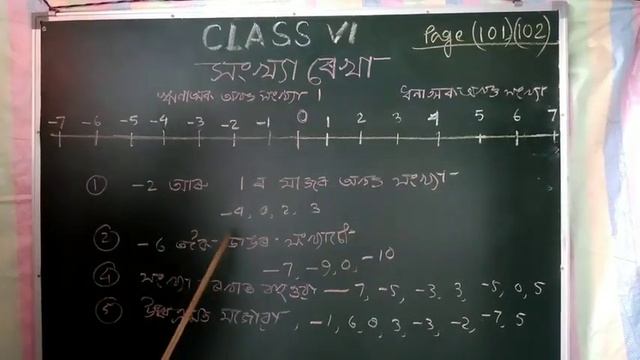 CLASS VI
Page (101)(102)
সংখ্যা ৰেখা
ঋণাত্মক অখণ্ড সংখ্যা । ধনাত্মক অখণ্ড সংখ্যা
-7 -6 -5 -4 -3 -2 -1 0 1 2 3 4 5 6 7
① -2 আৰু 1 ৰ মাজৰ অখণ্ড সংখ্যা -
-4, 0, 2, 3
② -6 সংখ্যাটো -
-7, -9, 0, -10
④ সংখ্যা ৰেখাত বহুওৱা — 7, -5, -3 3, -5, 0, 5
⑤ সজোৱা, -1, 6, 0, 3, -3, -2, -7, 5